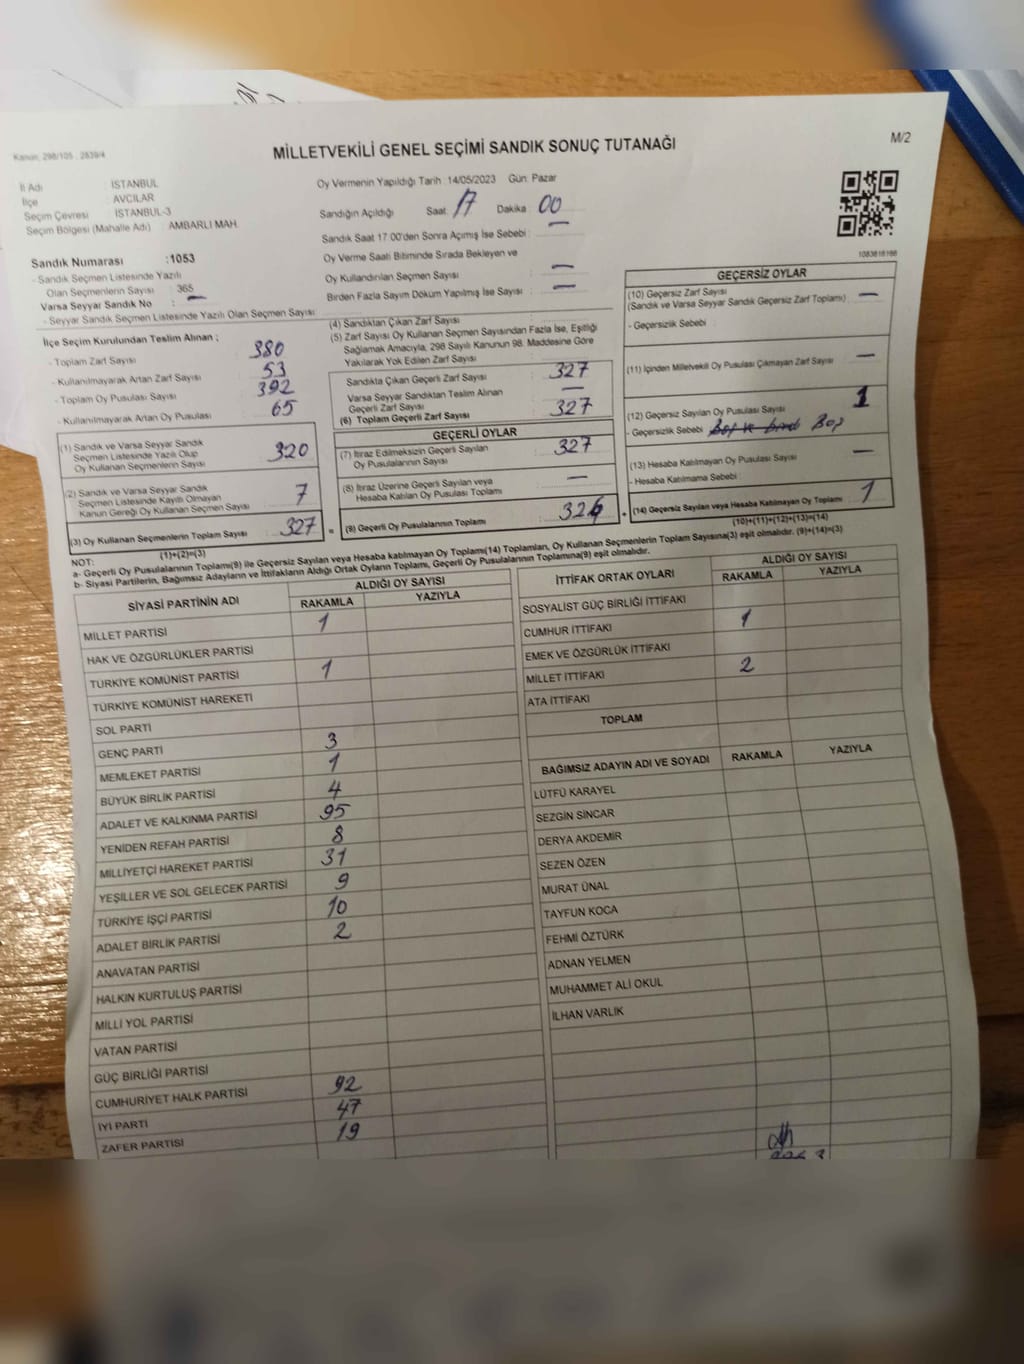 Kanun, 298/105 : 2839/4
MİLLETVEKİLİ GENEL SEÇİMİ SANDIK SONUÇ TUTANAĞI
M/2
İl Adı İSTANBUL
İlçe AVCILAR
Seçim Çevresi İSTANBUL-3
Seçim Bölgesi (Mahalle Adı) : AMBARLI MAH.
Oy Vermenin Yapıldığı Tarih : 14/05/2023 Gün: Pazar
Sandığın Açıldığı Saat : 17 Dakika : 00
Sandık Saat 17:00'den Sonra Açımış İse Sebebi : —
Oy Verme Saati Bitiminde Sırada Bekleyen ve
Oy Kullandırılan Seçmen Sayısı : —
Birden Fazla Sayım Döküm Yapılmış İse Sayısı : —
Sandık Numarası :1053
- Sandık Seçmen Listesinde Yazılı
Olan Seçmenlerin Sayısı : 365
Varsa Seyyar Sandık No : —
- Seyyar Sandık Seçmen Listesinde Yazılı Olan Seçmen Sayısı :
İlçe Seçim Kurulundan Teslim Alınan ;
- Toplam Zarf Sayısı 380
- Kullanılmayarak Artan Zarf Sayısı 53
- Toplam Oy Pusulası Sayısı 392
- Kullanılmayarak Artan Oy Pusulası 65
(1) Sandık ve Varsa Seyyar Sandık
Seçmen Listesinde Yazılı Olup
Oy Kullanan Seçmenlerin Sayısı 320
(2) Sandık ve Varsa Seyyar Sandık
Seçmen Listesinde Kayıtlı Olmayan
Kanun Gereği Oy Kullanan Seçmen Sayısı 7
(3) Oy Kullanan Seçmenlerin Toplam Sayısı : 327
(1)+(2)=(3)
(4) Sandıktan Çıkan Zarf Sayısı
(5) Zarf Sayısı Oy Kullanan Seçmen Sayısından Fazla İse, Eşitliği
Sağlamak Amacıyla, 298 Sayılı Kanunun 98. Maddesine Göre
Yakılarak Yok Edilen Zarf Sayısı
Sandıkta Çıkan Geçerli Zarf Sayısı : 327
Varsa Seyyar Sandıktan Teslim Alınan
Geçerli Zarf Sayısı : —
(6) Toplam Geçerli Zarf Sayısı : 327
GEÇERLİ OYLAR
(7) İtiraz Edilmeksizin Geçerli Sayılan
Oy Pusulalarının Sayısı : 327
(8) İtiraz Üzerine Geçerli Sayılan veya
Hesaba Katılan Oy Pusulası Toplamı : —
= (9) Geçerli Oy Pusulalarının Toplamı : 326 +
1083616166
GEÇERSİZ OYLAR
(10) Geçersiz Zarf Sayısı
(Sandık ve Varsa Seyyar Sandık Geçersiz Zarf Toplamı) : —
- Geçersizlik Sebebi :
(11) İçinden Milletvekili Oy Pusulası Çıkmayan Zarf Sayısı : —
(12) Geçersiz Sayılan Oy Pusulası Sayısı 1
- Geçersizlik Sebebi : Boş
(13) Hesaba Katılmayan Oy Pusulası Sayısı —
- Hesaba Katılmama Sebebi :
(14) Geçersiz Sayılan veya Hesaba Katılmayan Oy Toplamı : 1
(10)+(11)+(12)+(13)=(14)
NOT:
a- Geçerli Oy Pusulalarının Toplamı(9) ile Geçersiz Sayılan veya Hesaba katılmayan Oy Toplamı(14) Toplamları, Oy Kullanan Seçmenlerin Toplam Sayısına(3) eşit olmalıdır. (9)+(14)=(3)
b- Siyasi Partilerin, Bağımsız Adayların ve İttifakların Aldığı Ortak Oyların Toplamı, Geçerli Oy Pusulalarının Toplamına(9) eşit olmalıdır.
SİYASİ PARTİNİN ADI ALDIĞI OY SAYISI
RAKAMLA YAZIYLA
MİLLET PARTİSİ 1
HAK VE ÖZGÜRLÜKLER PARTİSİ
TÜRKİYE KOMÜNİST PARTİSİ 1
TÜRKİYE KOMÜNİST HAREKETİ
SOL PARTİ
GENÇ PARTİ 3
MEMLEKET PARTİSİ 1
BÜYÜK BİRLİK PARTİSİ 4
ADALET VE KALKINMA PARTİSİ 95
YENİDEN REFAH PARTİSİ 8
MİLLİYETÇİ HAREKET PARTİSİ 31
YEŞİLLER VE SOL GELECEK PARTİSİ 9
TÜRKİYE İŞÇİ PARTİSİ 10
ADALET BİRLİK PARTİSİ 2
ANAVATAN PARTİSİ
HALKIN KURTULUŞ PARTİSİ
MİLLİ YOL PARTİSİ
VATAN PARTİSİ
GÜÇ BİRLİĞİ PARTİSİ
CUMHURİYET HALK PARTİSİ 92
İYİ PARTİ 47
ZAFER PARTİSİ 19
İTTİFAK ORTAK OYLARI ALDIĞI OY SAYISI
RAKAMLA YAZIYLA
SOSYALİST GÜÇ BİRLİĞİ İTTİFAKI
CUMHUR İTTİFAKI 1
EMEK VE ÖZGÜRLÜK İTTİFAKI
MİLLET İTTİFAKI 2
ATA İTTİFAKI
TOPLAM
BAĞIMSIZ ADAYIN ADI VE SOYADI RAKAMLA YAZIYLA
LÜTFÜ KARAYEL
SEZGİN SİNCAR
DERYA AKDEMİR
SEZEN ÖZEN
MURAT ÜNAL
TAYFUN KOCA
FEHMİ ÖZTÜRK
ADNAN YELMEN
MUHAMMET ALİ OKUL
İLHAN VARLIK